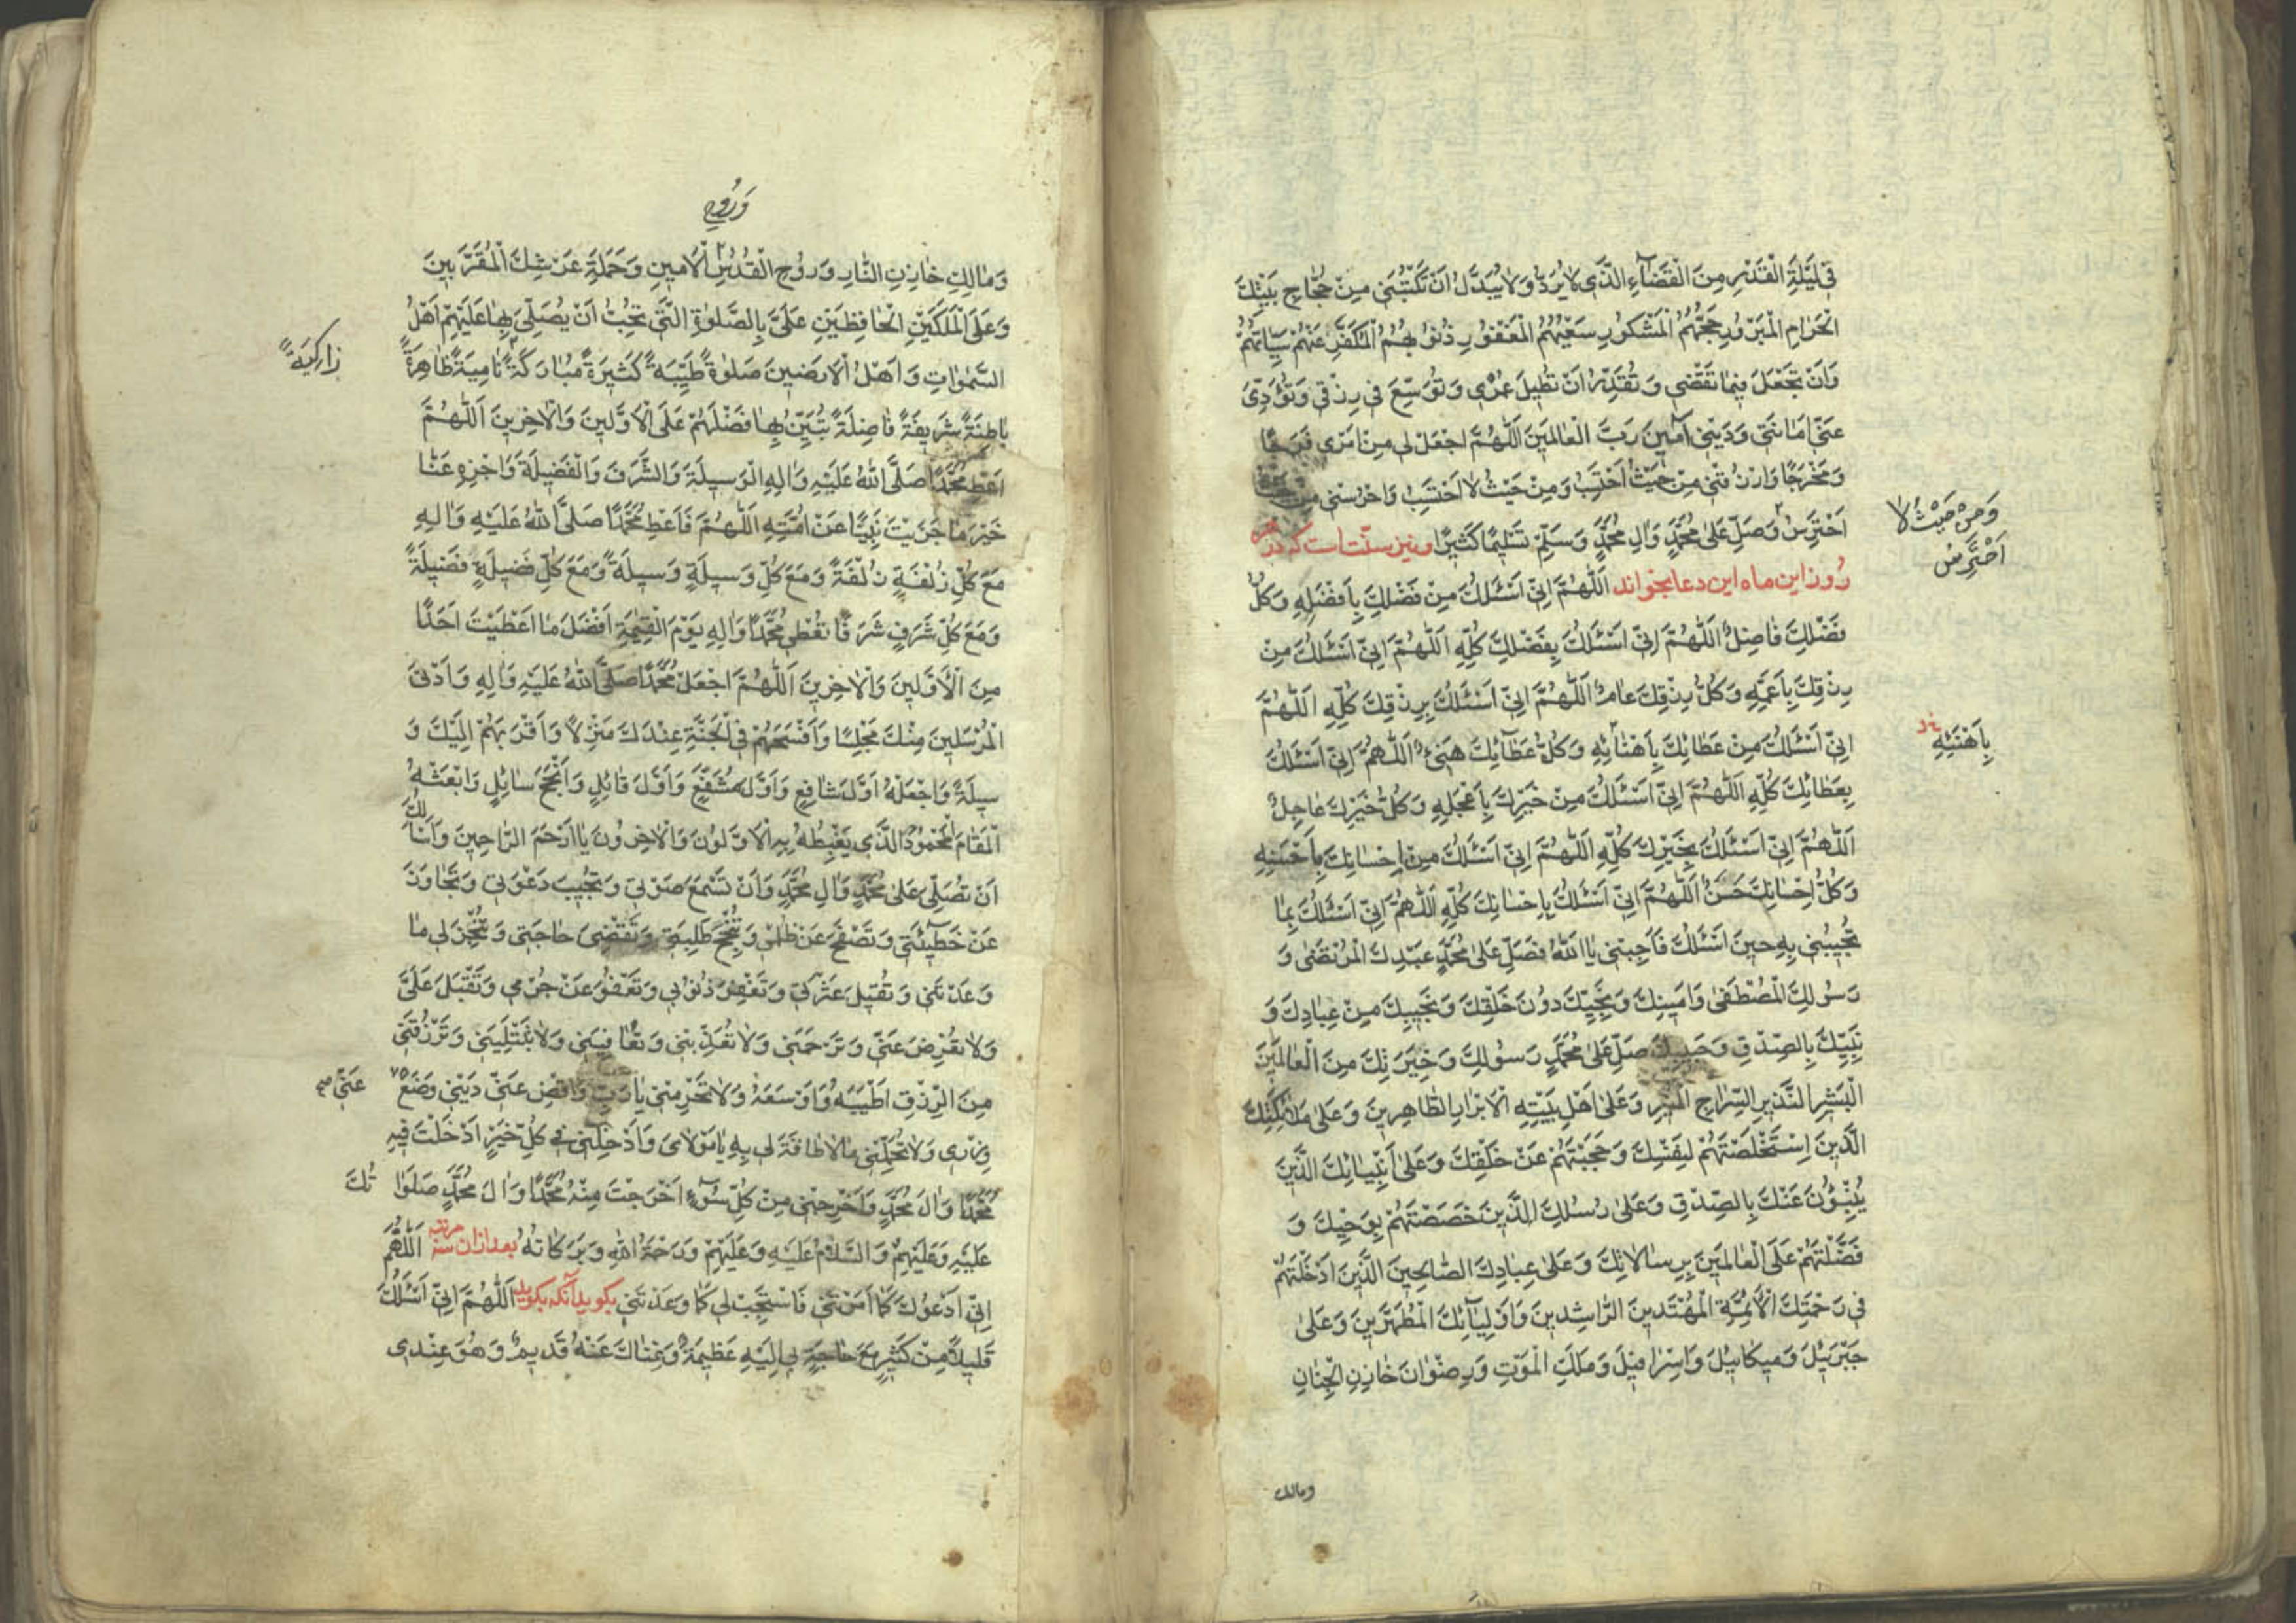 فِي لَيْلَةِ الْقَدْرِ مِنَ الْقَضَآءِ الَّذِي لَا يُرَدُّ وَلَا يُبَدَّلُ أَنْ تَكْتُبَنِي مِنْ حُجَّاجِ بَيْتِكَ
الْحَرَامِ الْمَبْرُورِ حَجُّهُمُ الْمَشْكُورِ سَعْيُهُمُ الْمَغْفُورِ ذُنُوبُهُمُ الْمُكَفَّرِ عَنْهُمْ سَيِّئَاتُهُمْ
وَأَنْ تَجْعَلَ فِيمَا تَقْضِي وَتُقَدِّرُ أَنْ تُطِيلَ عُمْرِي وَتُوَسِّعَ فِي رِزْقِي وَتُؤَدِّيَ
عَنِّي أَمَانَتِي وَدَيْنِي آمِينَ رَبَّ الْعَالَمِينَ اللّٰهُمَّ اجْعَلْ لِي مِنْ أَمْرِي فَرَجًا
وَمَخْرَجًا وَارْزُقْنِي مِنْ حَيْثُ أَحْتَسِبُ وَمِنْ حَيْثُ لَا أَحْتَسِبُ وَاحْرُسْنِي مِنْ حَيْثُ
أَحْتَرِسُ وَصَلِّ عَلَى مُحَمَّدٍ وَآلِ مُحَمَّدٍ وَسَلِّمْ تَسْلِيمًا كَثِيرًا و نیز سنّت است که در هر
وَمِنْ حَيْثُ لَا
أَحْتَرِسُ
روز این ماه این دعا بخواند اللّٰهُمَّ إِنِّي أَسْئَلُكَ مِنْ فَضْلِكَ بِأَفْضَلِهِ وَكُلُّ
فَضْلِكَ فَاضِلٌ اللّٰهُمَّ إِنِّي أَسْئَلُكَ بِفَضْلِكَ كُلِّهِ اللّٰهُمَّ إِنِّي أَسْئَلُكَ مِنْ
رِزْقِكَ بِأَعَمِّهِ وَكُلُّ رِزْقِكَ عَامٌّ اللّٰهُمَّ إِنِّي أَسْئَلُكَ بِرِزْقِكَ كُلِّهِ اللّٰهُمَّ
إِنِّي أَسْئَلُكَ مِنْ عَطَائِكَ بِأَهْنَائِهِ وَكُلُّ عَطَآئِكَ هَنِيءٌ اللّٰهُمَّ إِنِّي أَسْئَلُكَ
بِأَهْنَئِهِ
بِعَطَائِكَ كُلِّهِ اللّٰهُمَّ إِنِّي أَسْئَلُكَ مِنْ خَيْرِكَ بِأَعْجَلِهِ وَكُلُّ خَيْرِكَ عَاجِلٌ
اللّٰهُمَّ إِنِّي أَسْئَلُكَ بِخَيْرِكَ كُلِّهِ اللّٰهُمَّ إِنِّي أَسْئَلُكَ مِنْ إِحْسَانِكَ بِأَحْسَنِهِ
وَكُلُّ إِحْسَانِكَ حَسَنٌ اللّٰهُمَّ إِنِّي أَسْئَلُكَ بِإِحْسَانِكَ كُلِّهِ اللّٰهُمَّ إِنِّي أَسْئَلُكَ بِمَا
تُجِيبُنِي بِهِ حِينَ أَسْئَلُكَ فَأَجِبْنِي يَا اللّٰهُ فَصَلِّ عَلَى مُحَمَّدٍ عَبْدِكَ الْمُرْتَضَى وَ
رَسُولِكَ الْمُصْطَفَى وَأَمِينِكَ وَنَجِيِّكَ دُونَ خَلْقِكَ وَنَجِيبِكَ مِنْ عِبَادِكَ وَ
نَبِيِّكَ بِالصِّدْقِ وَحَبِيبِكَ صَلِّ عَلَى مُحَمَّدٍ رَسُولِكَ وَخِيَرَتِكَ مِنَ الْعَالَمِينَ
الْبَشِيرِ النَّذِيرِ السِّرَاجِ الْمُنِيرِ وَعَلَى أَهْلِ بَيْتِهِ الْأَبْرَارِ الطَّاهِرِينَ وَعَلَى مَلَائِكَتِكَ
الَّذِينَ اسْتَخْلَصْتَهُمْ لِنَفْسِكَ وَحَجَبْتَهُمْ عَنْ خَلْقِكَ وَعَلَى أَنْبِيَائِكَ الَّذِينَ
يُنْبِؤُنَ عَنْكَ بِالصِّدْقِ وَعَلَى رُسُلِكَ الَّذِينَ خَصَصْتَهُمْ بِوَحْيِكَ وَ
فَضَّلْتَهُمْ عَلَى الْعَالَمِينَ بِرِسَالَاتِكَ وَعَلَى عِبَادِكَ الصَّالِحِينَ الَّذِينَ أَدْخَلْتَهُمْ
فِي رَحْمَتِكَ الْأَئِمَّةِ الْمُهْتَدِينَ الرَّاشِدِينَ وَأَوْلِيَآئِكَ الْمُطَهَّرِينَ وَعَلَى
جَبْرَئِيلَ وَمِيكَائِيلَ وَإِسْرَافِيلَ وَمَلَكِ الْمَوْتِ وَرِضْوَانَ خَازِنِ الْجِنَانِ
ومالك
وَرُوحِ
وَمَالِكٍ خَازِنِ النَّارِ وَرُوحِ الْقُدُسِ الْأَمِينِ وَحَمَلَةِ عَرْشِكَ الْمُقَرَّبِينَ
وَعَلَى الْمَلَكَيْنِ الْحَافِظَيْنِ عَلَيَّ بِالصَّلَوٰةِ الَّتِي تُحِبُّ أَنْ يُصَلِّيَ بِهَا عَلَيْهِمْ أَهْلُ
السَّمٰوَاتِ وَأَهْلُ الْأَرَضِينَ صَلَوٰةً طَيِّبَةً كَثِيرَةً مُبَارَكَةً نَامِيَةً ظَاهِرَةً
زَاكِيَةً
بَاطِنَةً شَرِيفَةً فَاضِلَةً تُبَيِّنُ بِهَا فَضْلَهُمْ عَلَى الْأَوَّلِينَ وَالْآخِرِينَ اللّٰهُمَّ
أَعْطِ مُحَمَّدًا صَلَّى اللّٰهُ عَلَيْهِ وَآلِهِ الْوَسِيلَةَ وَالشَّرَفَ وَالْفَضِيلَةَ وَاجْزِهِ عَنَّا
خَيْرَ مَا جَزَيْتَ نَبِيًّا عَنْ أُمَّتِهِ اللّٰهُمَّ فَأَعْطِ مُحَمَّدًا صَلَّى اللّٰهُ عَلَيْهِ وَآلِهِ
مَعَ كُلِّ زُلْفَةٍ زُلْفَةً وَمَعَ كُلِّ وَسِيلَةٍ وَسِيلَةً وَمَعَ كُلِّ فَضِيلَةٍ فَضِيلَةً
وَمَعَ كُلِّ شَرَفٍ شَرَفًا تُعْطِي مُحَمَّدًا وَآلِهِ يَوْمَ الْقِيٰمَةِ أَفْضَلَ مَا أَعْطَيْتَ أَحَدًا
مِنَ الْأَوَّلِينَ وَالْآخِرِينَ اللّٰهُمَّ اجْعَلْ مُحَمَّدًا صَلَّى اللّٰهُ عَلَيْهِ وَآلِهِ وَأَدْنَى
الْمُرْسَلِينَ مِنْكَ مَجْلِسًا وَأَفْسَحَهُمْ فِي الْجَنَّةِ عِنْدَكَ مَنْزِلًا وَأَقْرَبَهُمْ إِلَيْكَ وَ
سِيلَةً وَاجْعَلْهُ أَوَّلَ شَافِعٍ وَأَوَّلَ مُشَفَّعٍ وَأَوَّلَ قَائِلٍ وَأَنْجَحَ سَائِلٍ وَابْعَثْهُ
الْمَقَامَ الْمَحْمُودَ الَّذِي يَغْبِطُهُ بِهِ الْأَوَّلُونَ وَالْآخِرُونَ يَا أَرْحَمَ الرَّاحِمِينَ وَأَسْأَلُكَ
أَنْ تُصَلِّيَ عَلَى مُحَمَّدٍ وَآلِ مُحَمَّدٍ وَأَنْ تَسْمَعَ صَوْتِي وَتُجِيبَ دَعْوَتِي وَتَجَاوَزَ
عَنْ خَطِيئَتِي وَتَصْفَحَ عَنْ ظُلْمِي وَتُنْجِحَ طَلِبَتِي وَتَقْضِيَ حَاجَتِي وَتُنْجِزَ لِي مَا
وَعَدْتَنِي وَتُقِيلَ عَثْرَتِي وَتَغْفِرَ ذُنُوبِي وَتَعْفُوَ عَنْ جُرْمِي وَتُقْبِلَ عَلَيَّ
وَلَا تُعْرِضَ عَنِّي وَتَرْحَمَنِي وَلَا تُعَذِّبَنِي وَتُعَافِيَنِي وَلَا تَبْتَلِيَنِي وَتَرْزُقَنِي
مِنَ الرِّزْقِ أَطْيَبَهُ وَأَوْسَعَهُ وَلَا تَحْرِمْنِي يَا رَبِّ وَاقْضِ عَنِّي دَيْنِي وَضَعْ
عَنِّي صح
وِزْرِي وَلَا تُحَمِّلْنِي مَا لَا طَاقَةَ لِي بِهِ يَا مَوْلَايَ وَأَدْخِلْنِي فِي كُلِّ خَيْرٍ أَدْخَلْتَ فِيهِ
مُحَمَّدًا وَآلَ مُحَمَّدٍ وَأَخْرِجْنِي مِنْ كُلِّ سُوٓءٍ أَخْرَجْتَ مِنْهُ مُحَمَّدًا وَآلَ مُحَمَّدٍ صَلَوَاتُكَ
عَلَيْهِ وَعَلَيْهِمْ وَالسَّلَامُ عَلَيْهِ وَعَلَيْهِمْ وَرَحْمَةُ اللّٰهِ وَبَرَكَاتُهُ بعد ازان سه مرتبه اللّٰهُمَّ
إِنِّي أَدْعُوكَ كَمَا أَمَرْتَنِي فَاسْتَجِبْ لِي كَمَا وَعَدْتَنِي بگوید آنگه بگوید اللّٰهُمَّ إِنِّي أَسْئَلُكَ
قَلِيلًا مِنْ كَثِيرٍ مَعَ حَاجَةٍ بِي إِلَيْهِ عَظِيمَةٍ وَغِنَاكَ عَنْهُ قَدِيمٌ وَهُوَ عِنْدِي